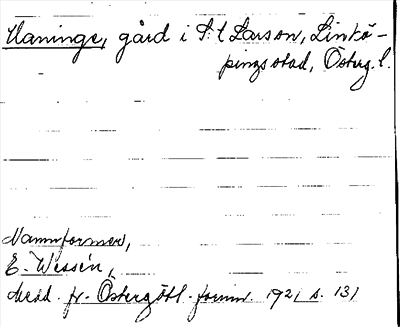 Haninge, gård i S:t Larson, Linkö-
pingsstad, Österg. l.
Namnformer,
E. Wessén,
Medd. fr. Östergötl. fornm. 1921 s. 131